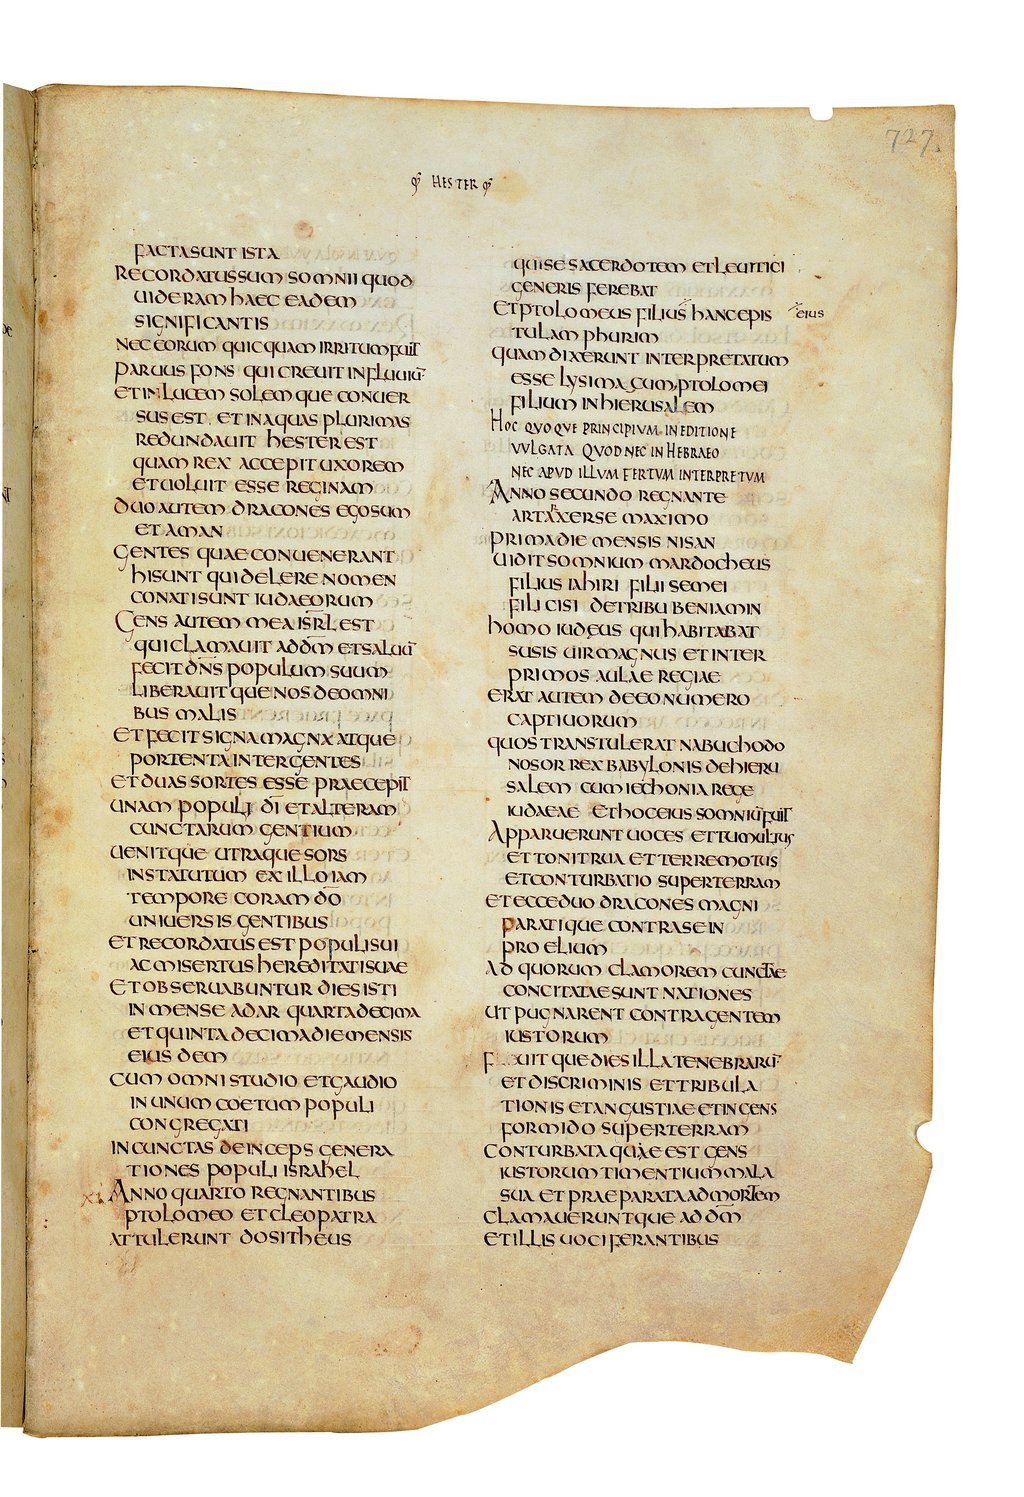 727.
HESTER
FACTA SUNT ISTA
RECORDATUS SUM SOMNII QUOD
UIDERAM HAEC EADEM
SIGNIFICANTIS
NEC EORUM QUICQUAM IRRITUM FUIT
PARUUS FONS QUI CREUIT IN FLUUIŪ
ET IN LUCEM SOLEMQUE CONUER
SUS EST ET IN AQUAS PLURIMAS
REDUNDAUIT HESTER EST
QUAM REX ACCEPIT UXOREM
ET UOLUIT ESSE REGINAM
DUO AUTEM DRACONES EGO SUM
ET AMAN
GENTES QUAE CONUENERANT
HI SUNT QUI DELERE NOMEN
CONATI SUNT IUDAEORUM
GENS AUTEM MEA ISRL̄ EST
QUI CLAMAUIT AD DM̄ ET SALUŪ
FECIT DN̄S POPULUM SUUM
LIBERAUITQUE NOS DE OMNI
BUS MALIS
ET FECIT SIGNA MAGNA ATQUE
PORTENTA INTER GENTES
ET DUAS SORTES ESSE PRAECEPIT
UNAM POPULI DĪ ET ALTERAM
CUNCTARUM GENTIUM
UENITQUE UTRAQUE SORS
IN STATUTUM EX ILLO IAM
TEMPORE CORAM DŌ
UNIUERSIS GENTIBUS
ET RECORDATUS EST POPULI SUI
AC MISERTUS HEREDITATI SUAE
ET OBSERUABUNTUR DIES ISTI
IN MENSE ADAR QUARTA DECIMA
ET QUINTA DECIMA DIE MENSIS
EIUSDEM
CUM OMNI STUDIO ET GAUDIO
IN UNUM COETUM POPULI
CONGREGATI
IN CUNCTAS DEINCEPS GENERA
TIONES POPULI ISRAHEL
XI. ANNO QUARTO REGNANTIBUS
PTOLOMEO ET CLEOPATRA
ATTULERUNT DOSITHEUS
QUI SE SACERDOTEM ET LEUITICI
GENERIS FEREBAT
ET PTOLOMEUS FILIUS HANC EPIS
eius
TULAM PHURIM
QUAM DIXERUNT INTERPRETATUM
ESSE LYSIMACUM PTOLOMEI
FILIUM IN HIERUSALEM
HOC QUOQUE PRINCIPIUM IN EDITIONE
VULGATA QUOD NEC IN HEBRAEO
NEC APUD ILLUM FERTUM INTERPRETUM
ANNO SECUNDO REGNANTE
ARTAXERSE MAXIMO
PRIMA DIE MENSIS NISAN
UIDIT SOMNIUM MARDOCHEUS
FILIUS IAHIRI FILII SEMEI
FILI CISI DE TRIBU BENIAMIN
HOMO IUDEUS QUI HABITABAT
SUSIS UIR MAGNUS ET INTER
PRIMOS AULAE REGIAE
ERAT AUTEM DE EO NUMERO
CAPTIUORUM
QUOS TRANSTULERAT NABUCHODO
NOSOR REX BABYLONIS DE HIERU
SALEM CUM IECHONIA REGE
IUDAEAE ET HOC EIUS SOMNIŪ FUIT
APPARUERUNT UOCES ET TUMULTUS
ET TONITRUA ET TERREMOTUS
ET CONTURBATIO SUPER TERRAM
ET ECCE DUO DRACONES MAGNI
PARATIQUE CONTRA SE IN
PROELIUM
AD QUORUM CLAMOREM CUNCTAE
CONCITATAE SUNT NATIONES
UT PUGNARENT CONTRA GENTEM
IUSTORUM
FUITQUE DIES ILLA TENEBRARŪ
ET DISCRIMINIS ET TRIBULA
TIONIS ET ANGUSTIAE ET INGENS
FORMIDO SUPER TERRAM
CONTURBATAQUAE EST GENS
IUSTORUM TIMENTIUM MALA
SUA ET PRAEPARATA AD MORTEM
CLAMAUERUNTQUE AD DM̄
ET ILLIS UOCIFERANTIBUS